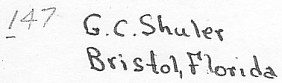 147 G.C. Shuler
Bristol, Florida